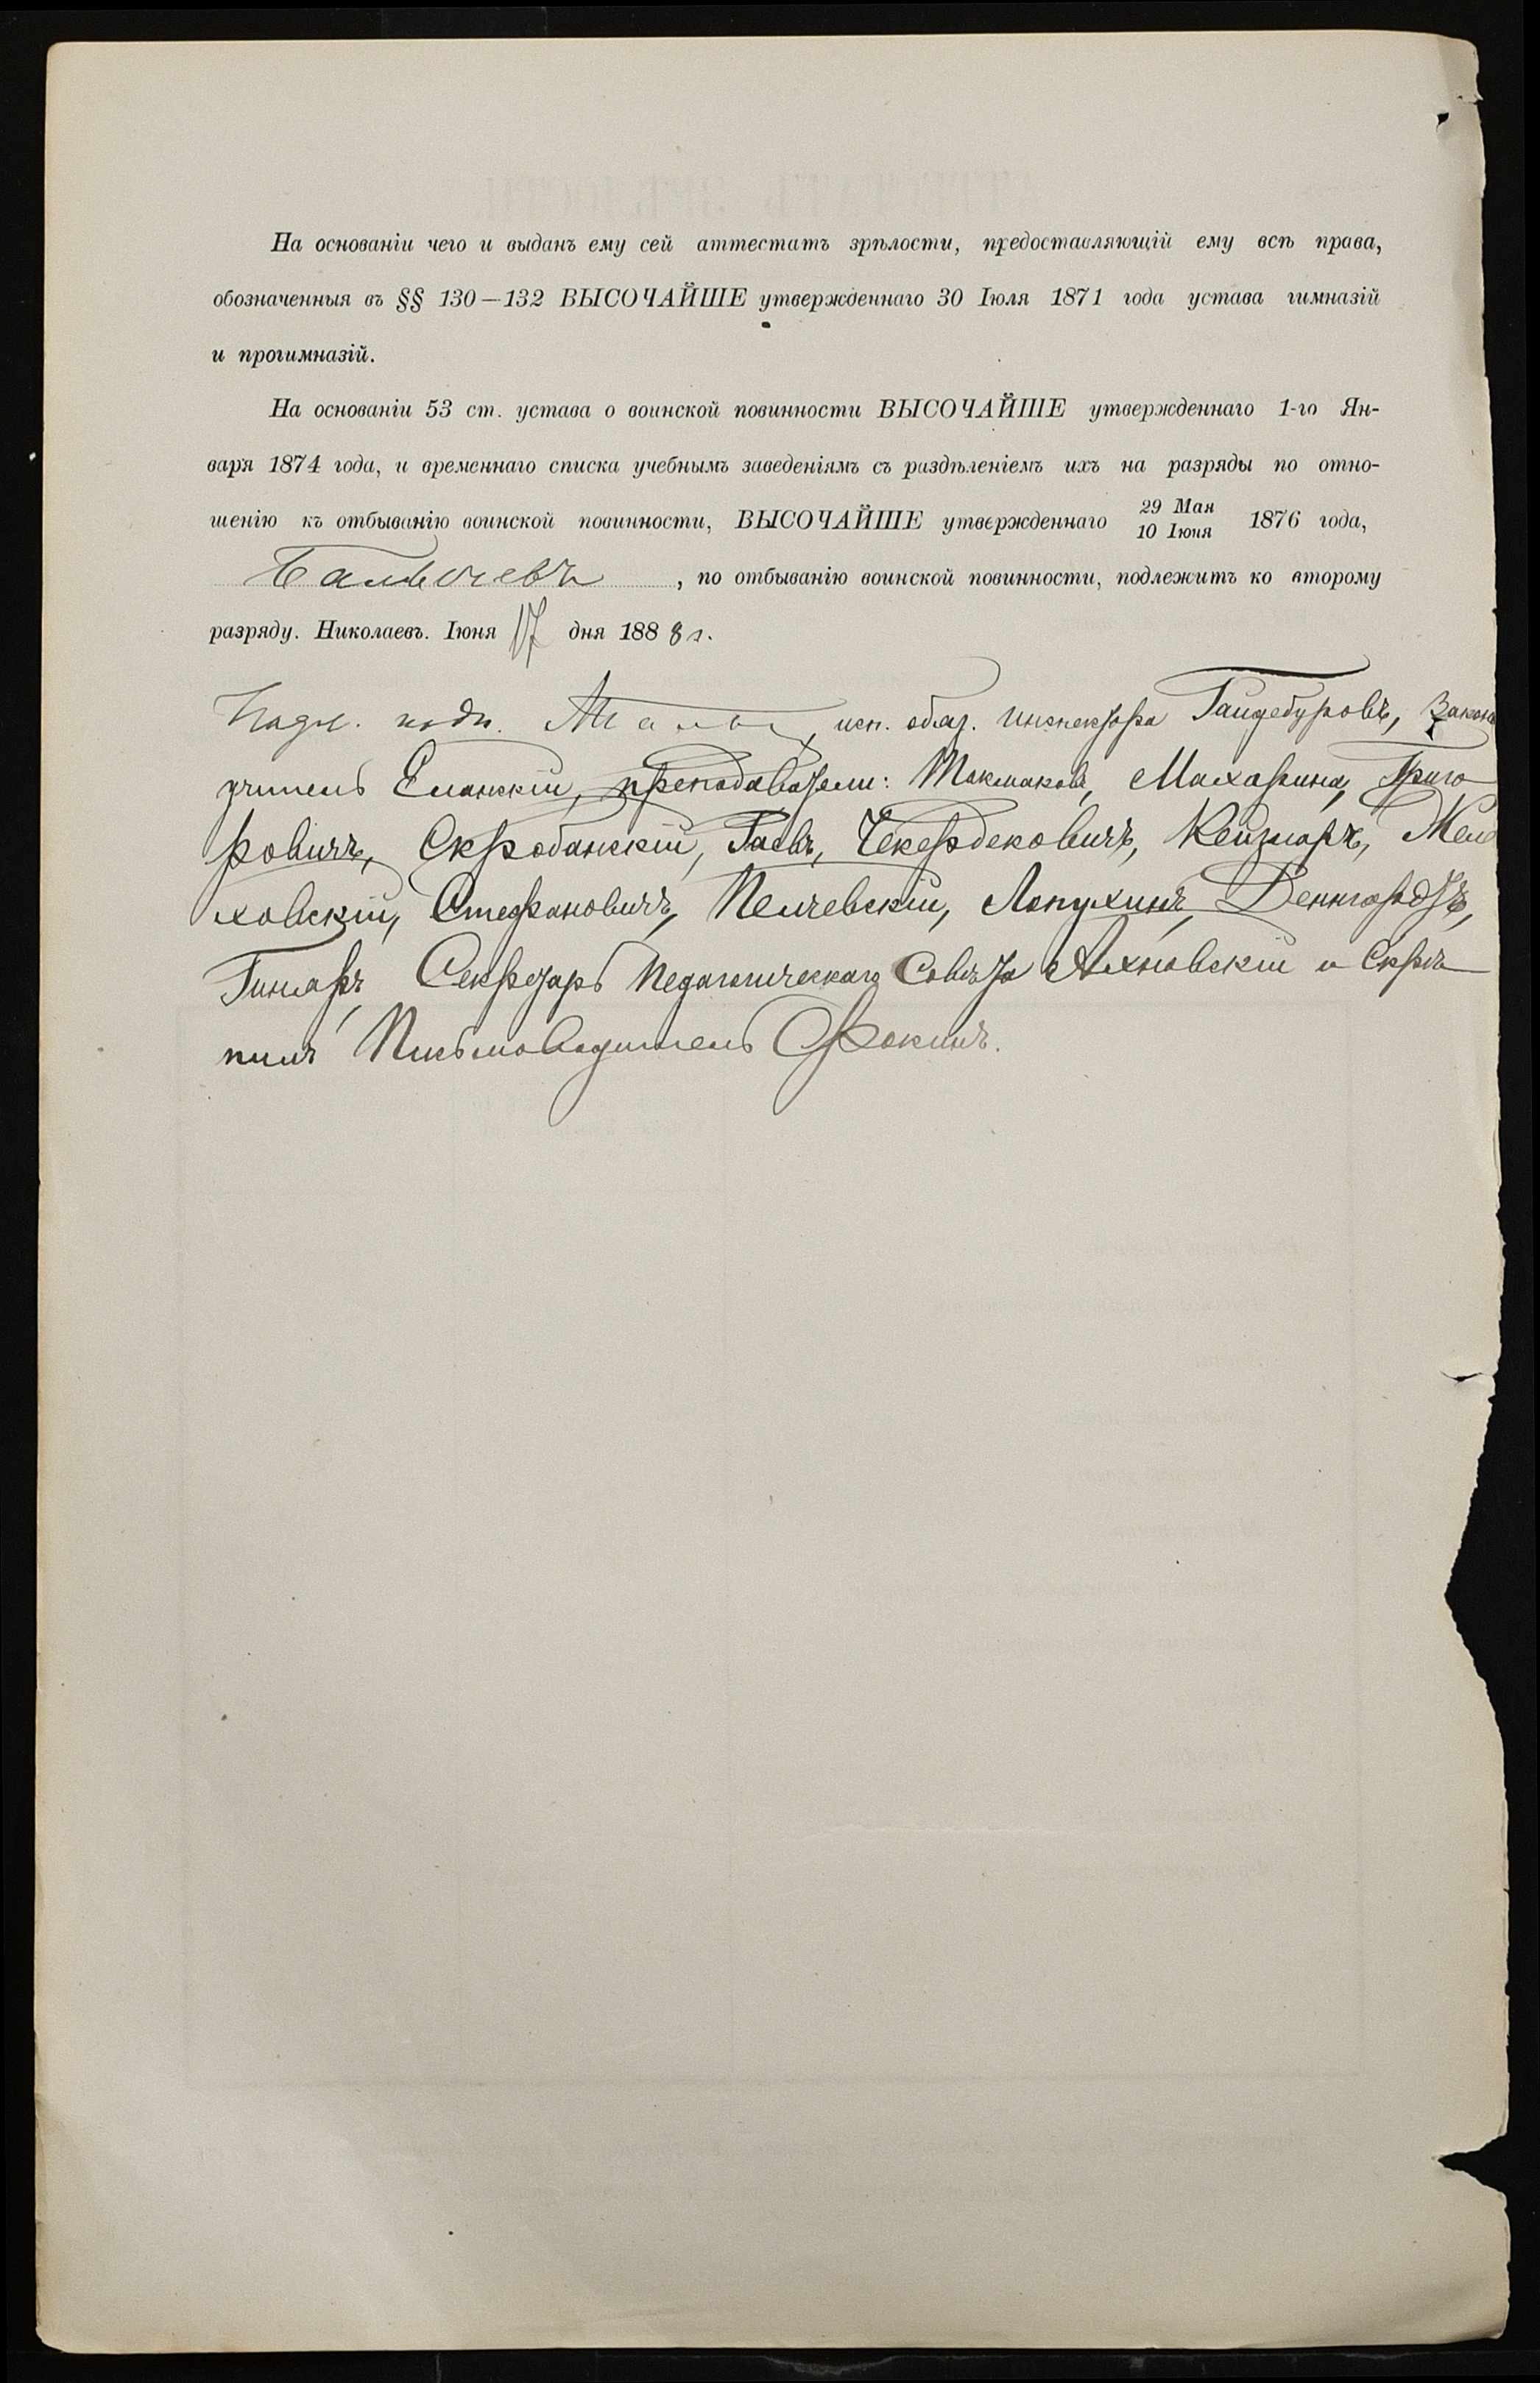 На основаніи чего и выданъ ему сей аттестатъ зрѣлости, предоставляющій ему всѣ права,
обозначенныя въ §§ 130—132 ВЫСОЧАЙШЕ утвержденнаго 30 Іюля 1871 года устава гимназій
и прогимназій.
На основаніи 53 ст. устава о воинской повинности ВЫСОЧАЙШЕ утвержденнаго 1-го Ян-
варя 1874 года, и временнаго списка учебнымъ заведеніямъ съ раздѣленіемъ ихъ на разряды по отно-
шенію къ отбыванію воинской повинности, ВЫСОЧАЙШЕ утвержденнаго 29 Мая 10 Іюня 1876 года,
, по отбыванію воинской повинности, подлежитъ ко второму
разряду. Николаевъ. Іюня 17 дня 1888 г.
подп. исп. обяз. инспектора Гайдебуровъ, Законо
учитель Еланскій, преподаватели: Токмаковъ, Махарина, Григо
ровичъ, Скробанскій, Гаевъ, Чекердековичъ, Кейзларъ,
ховскій, Стефановичъ, Пелчевскій, Лопухинъ, Денгардтъ,
Секретарь Педагогическаго Совѣта и Скрѣ
пилъ Письмоводитель Фокинъ.